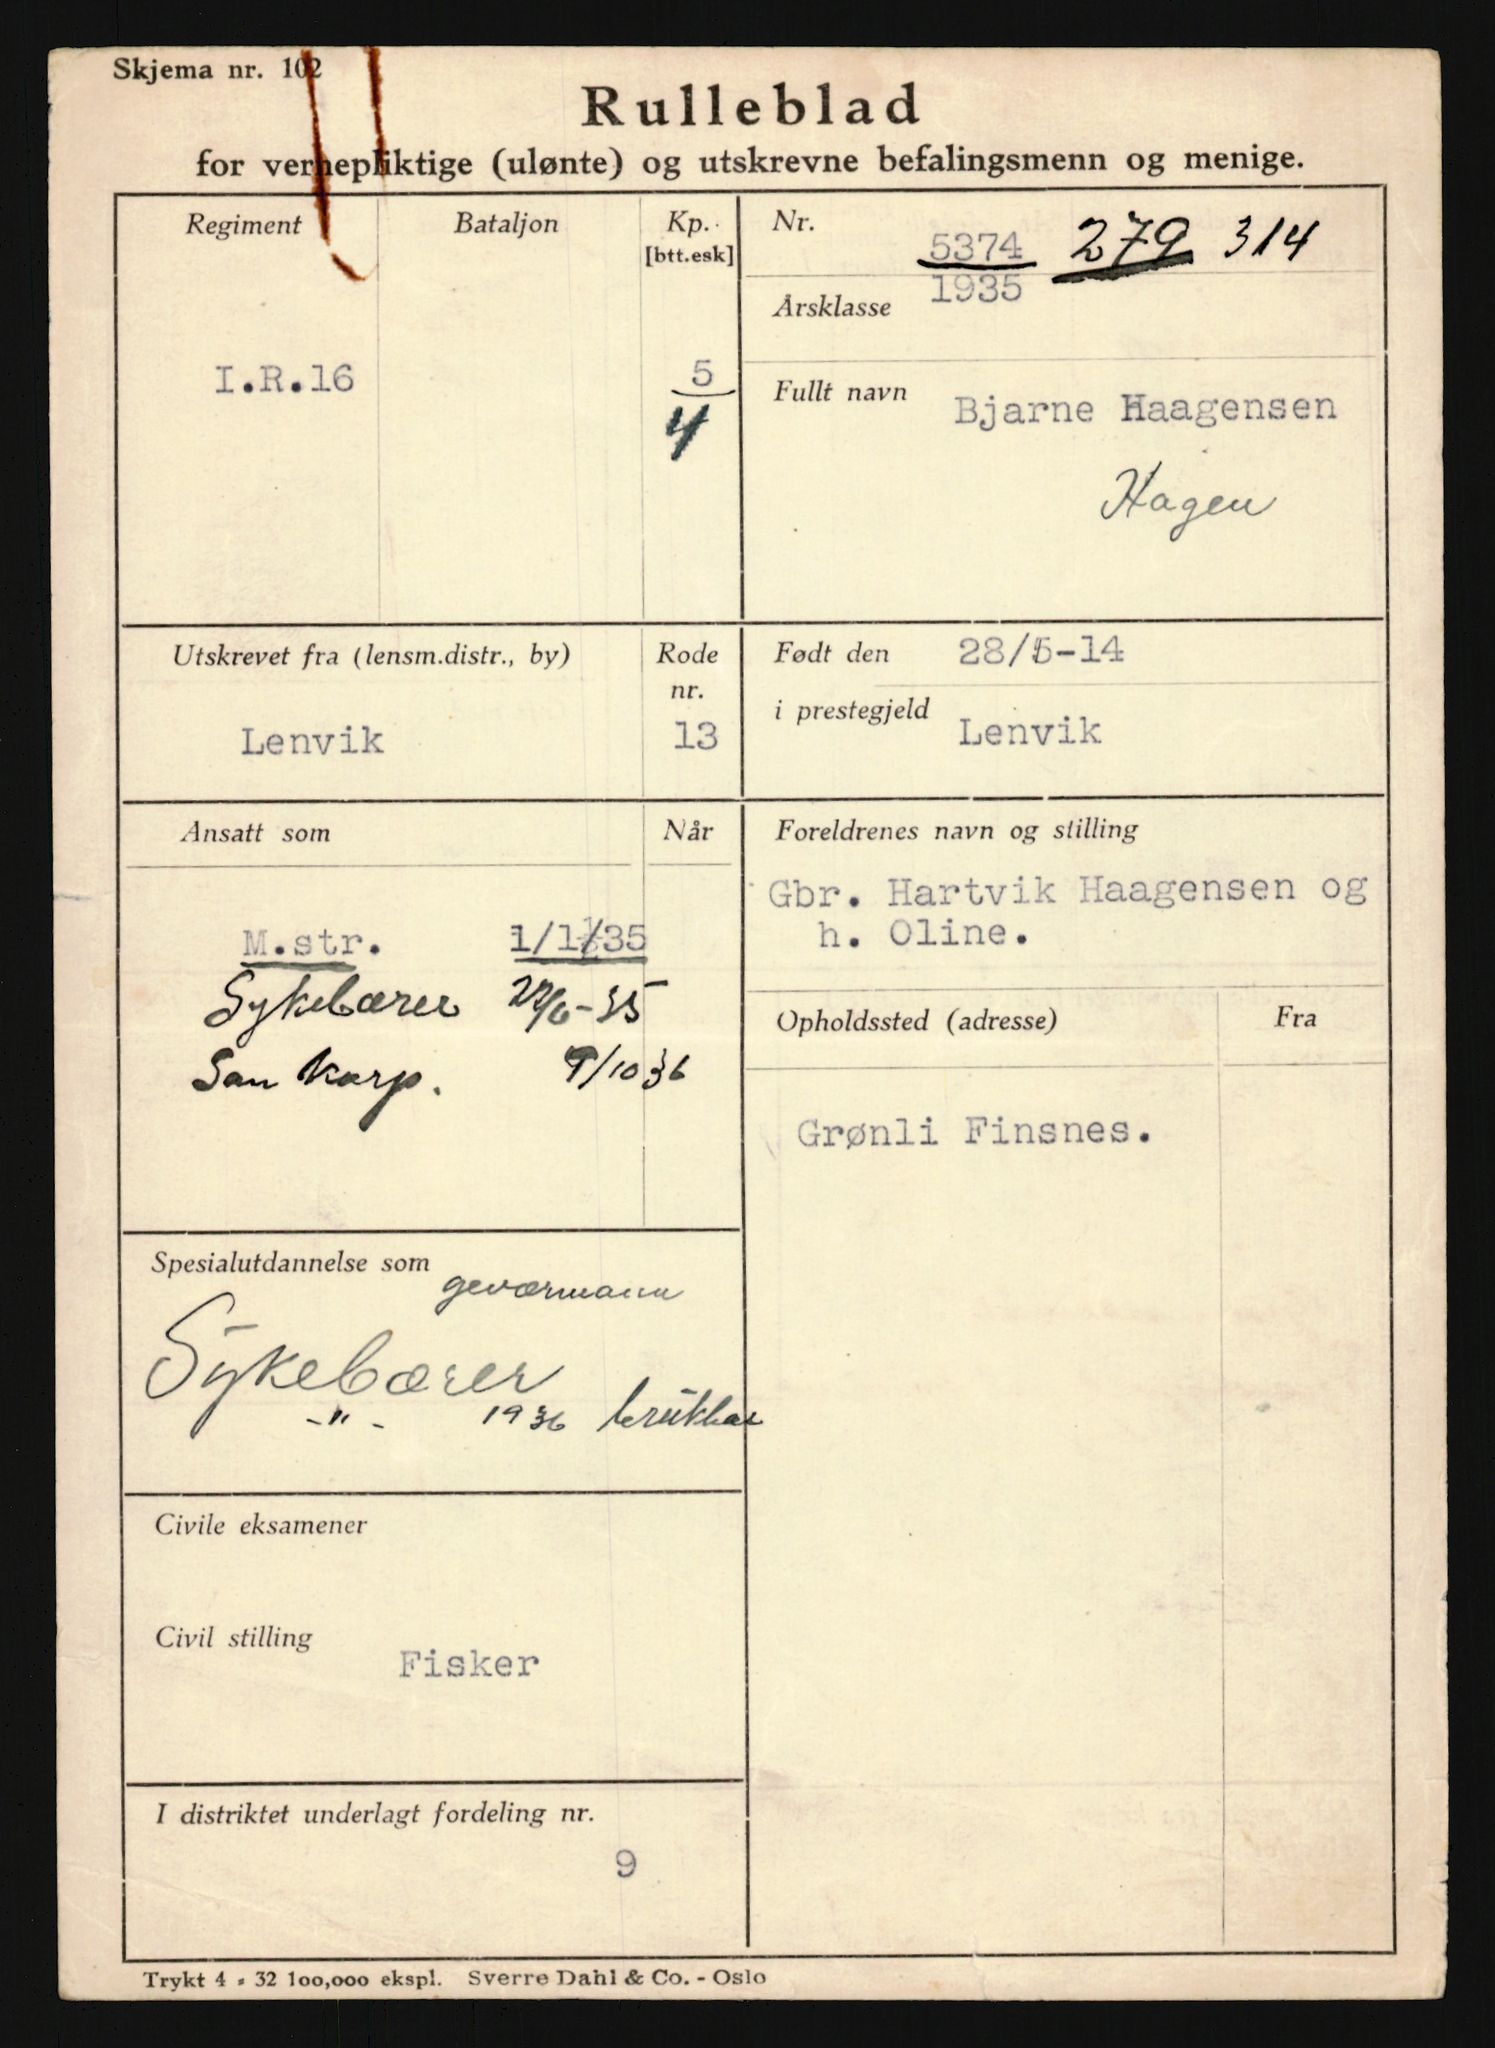 Skjema nr. 102
Rulleblad
for vernepliktige (ulønte) og utskrevne befalingsmenn og menige.
Regiment
Bataljon
Kp.
[btt.esk]
I.R.16
5
4
Nr.
5374 279 314
Årsklasse
1935
Fullt navn
Bjarne Haagensen
Hagen
Utskrevet fra (lensm.distr., by)
Lenvik
Rode
nr.
13
Født den 28/5-14
i prestegjeld Lenvik
Ansatt som
Når
M.str. 1/1/35
Sykebærer 27/6-35
San Korp. 9/10 36
Foreldrenes navn og stilling
Gbr. Hartvik Haagensen og
h. Oline.
Opholdssted (adresse)
Fra
Grønli Finsnes.
Spesialutdannelse som
geværmann
Sykebærer
-"- 1936 brukbar
Civile eksamener
Civil stilling
Fisker
I distriktet underlagt fordeling nr.
9
Trykt 4 - 32 100,000 ekspl. Sverre Dahl & Co. - Oslo